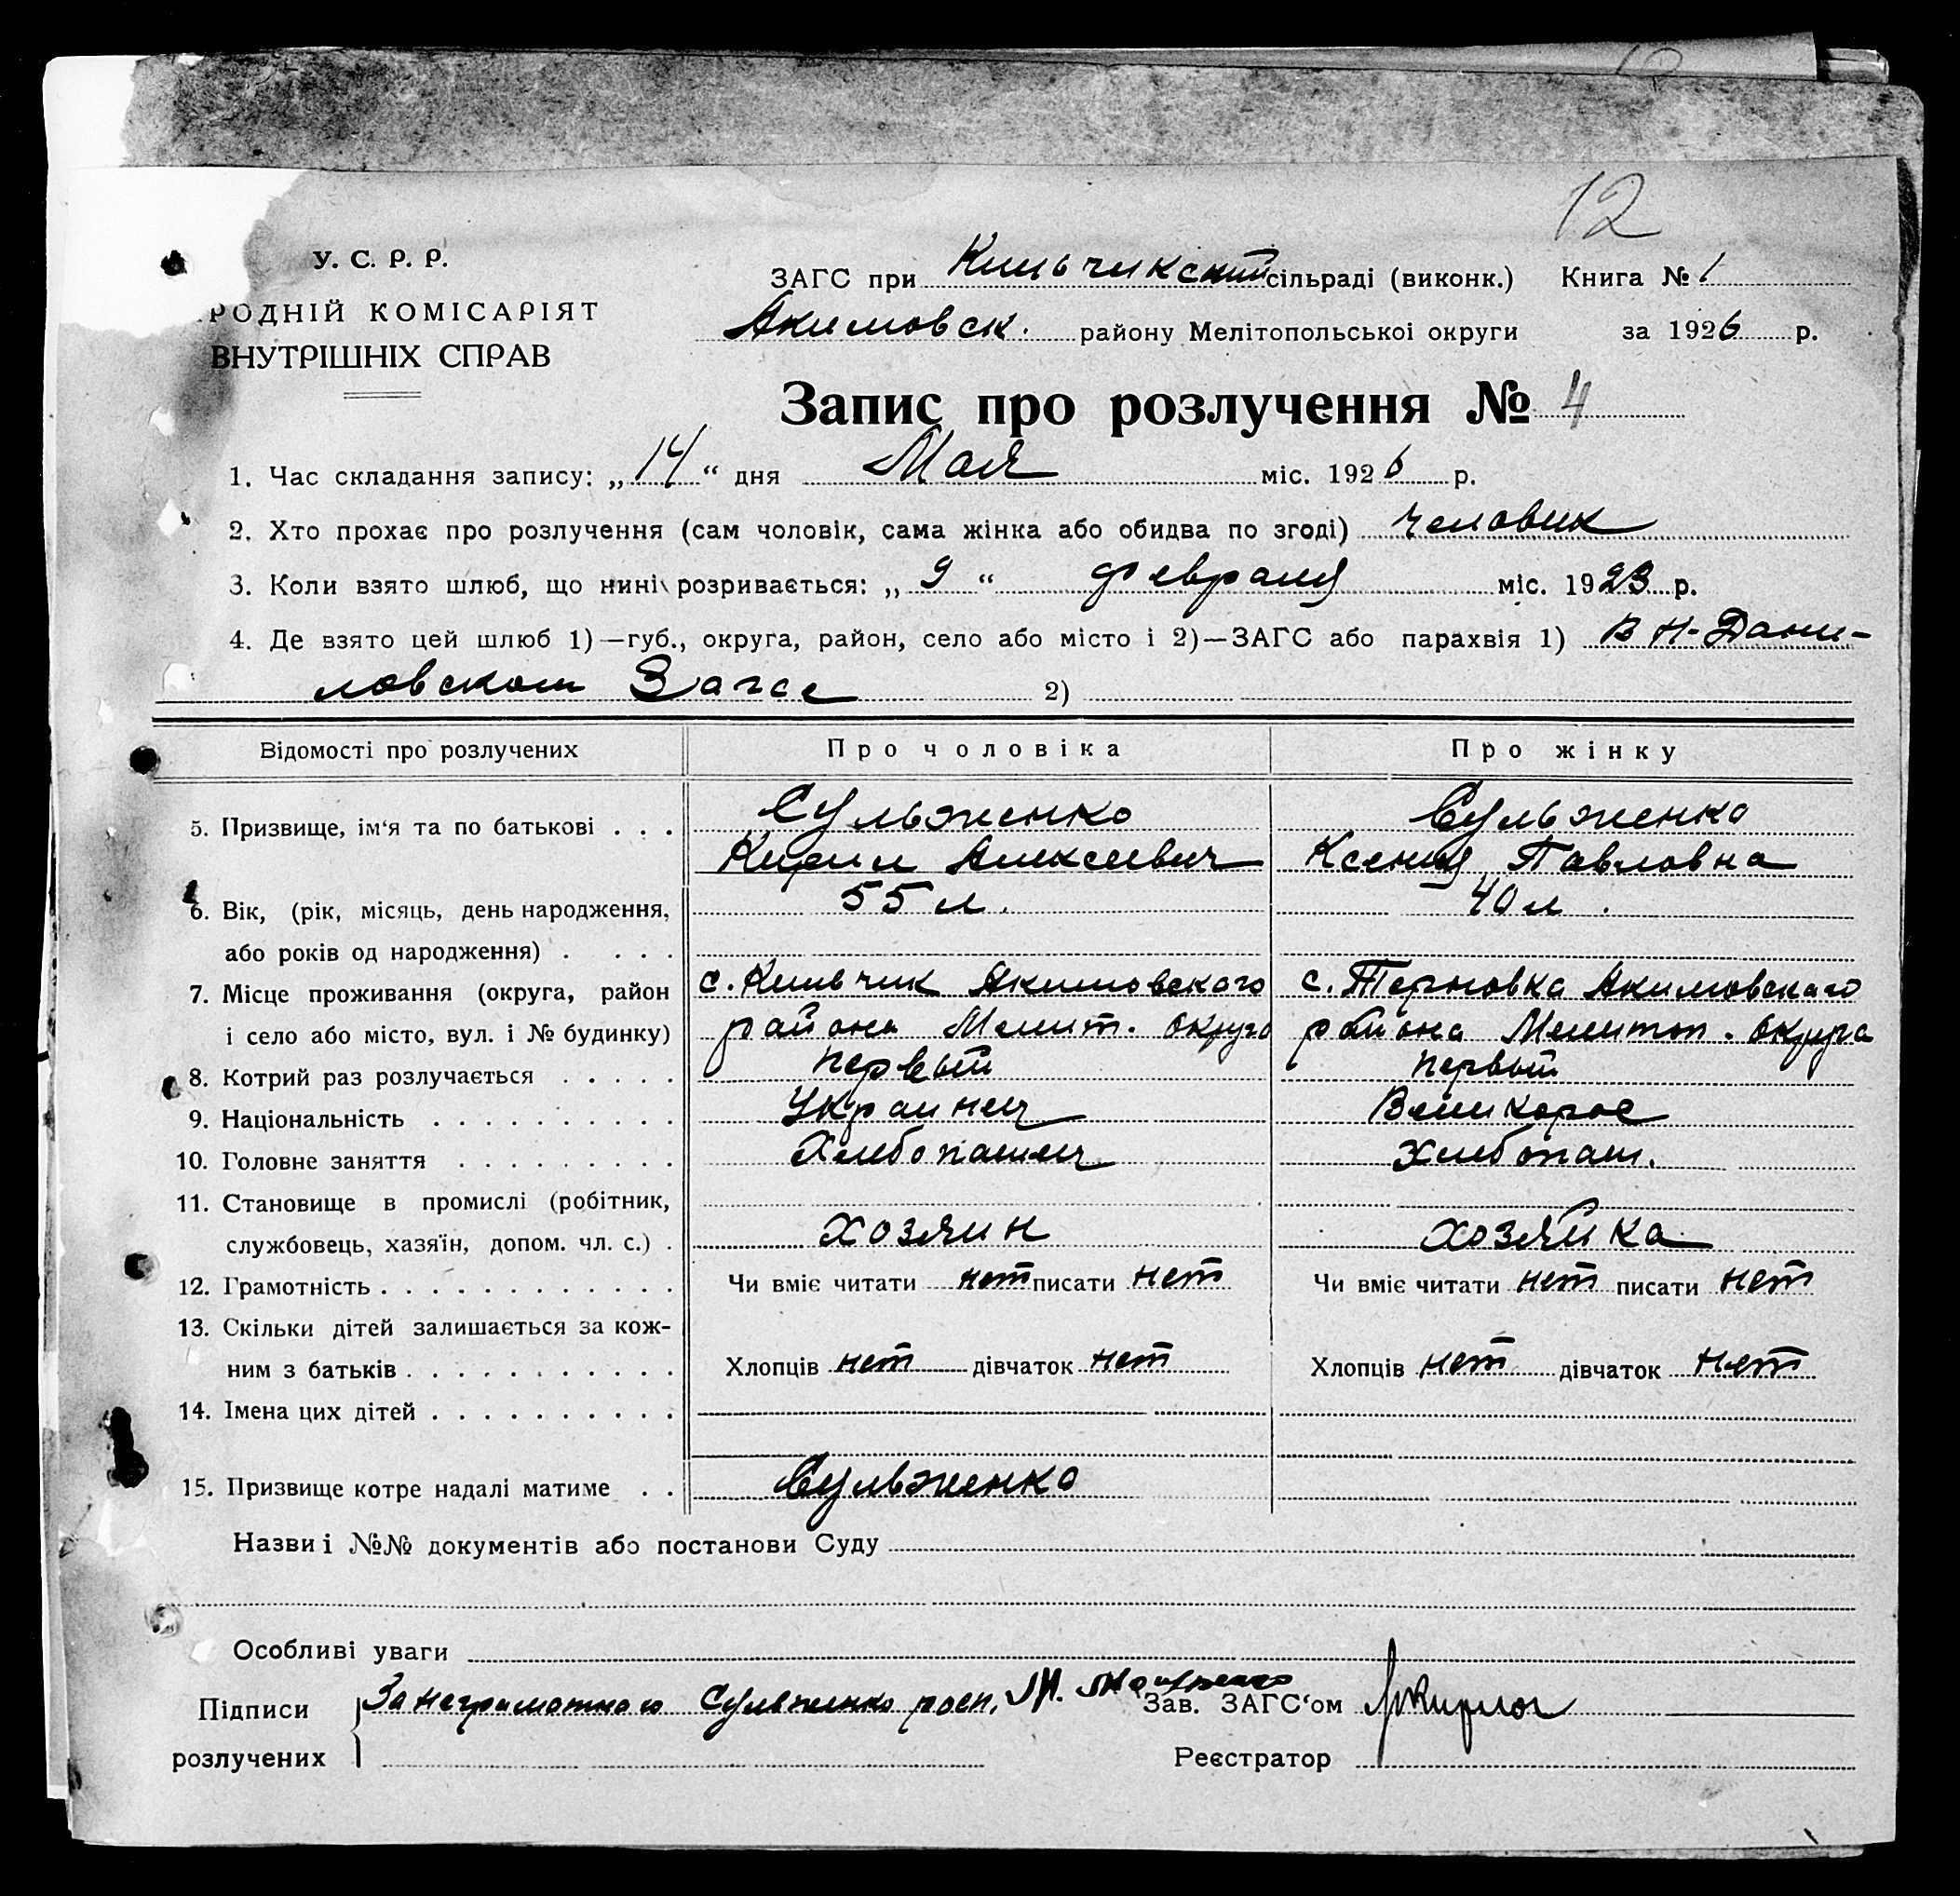 12
У. С. Р. Р.
РОДНІЙ КОМІСАРІЯТ
ВНУТРІШНІХ СПРАВ
ЗАГС при Кильчикский сільраді (виконк.) Книга № 1
Акимовск. району Мелітопольської округи за 1926 р.
Запис про розлучення № 4
1. Час складання запису: „14“ дня Мая міс. 1926 р.
2. Хто прохає про розлучення (сам чоловік, сама жінка або обидва по згоді) человик
3. Коли взято шлюб, що нині розривається: „9“ февраля міс. 1923 р.
4. Де взято цей шлюб 1)—губ., округа, район, село або місто і 2)—ЗАГС або парахвія 1) В Н-Дани-
ловском Загсе 2)
Відомості про розлучених Про чоловіка Про жінку
5. Призвище, ім‘я та по батькові . . . Сульженко Сульженко
Кирил Алексеевич Ксения Павловна
6. Вік, (рік, місяць, день народження, 55 л. 40 л.
або років од народження) . . . .
7. Місце проживання (округа, район с. Кильчик Акимовского с. Терновка Акимовскаго
і село або місто, вул. і № будинку) района Мелит. округа района Мелитоп. округа
8. Котрий раз розлучається . . . . . первый первый
9. Національність . . . . . . . . . . Украинец Великорос
10. Головне заняття . . . . . . . . . Хлебопашец Хлебопаш.
11. Становище в промислі (робітник,
службовець, хазяїн, допом. чл. с.) . хозяин хозяйка
12. Грамотність . . . . . . . . . . . . Чи вміє читати нет писати нет Чи вміє читати нет писати нет
13. Скільки дітей залишається за кож-
ним з батьків . . . . . . . . . . . Хлопців нет дівчаток нет Хлопців нет дівчаток нет
14. Імена цих дітей . . . . . . . . . .
15. Призвище котре надалі матиме . . Сульженко
Назви і №№ документів або постанови Суду
Особливі уваги
Підписи За неграмотного Сульженко росп. М. Зав. ЗАГС‘ом
розлучених Реєстратор